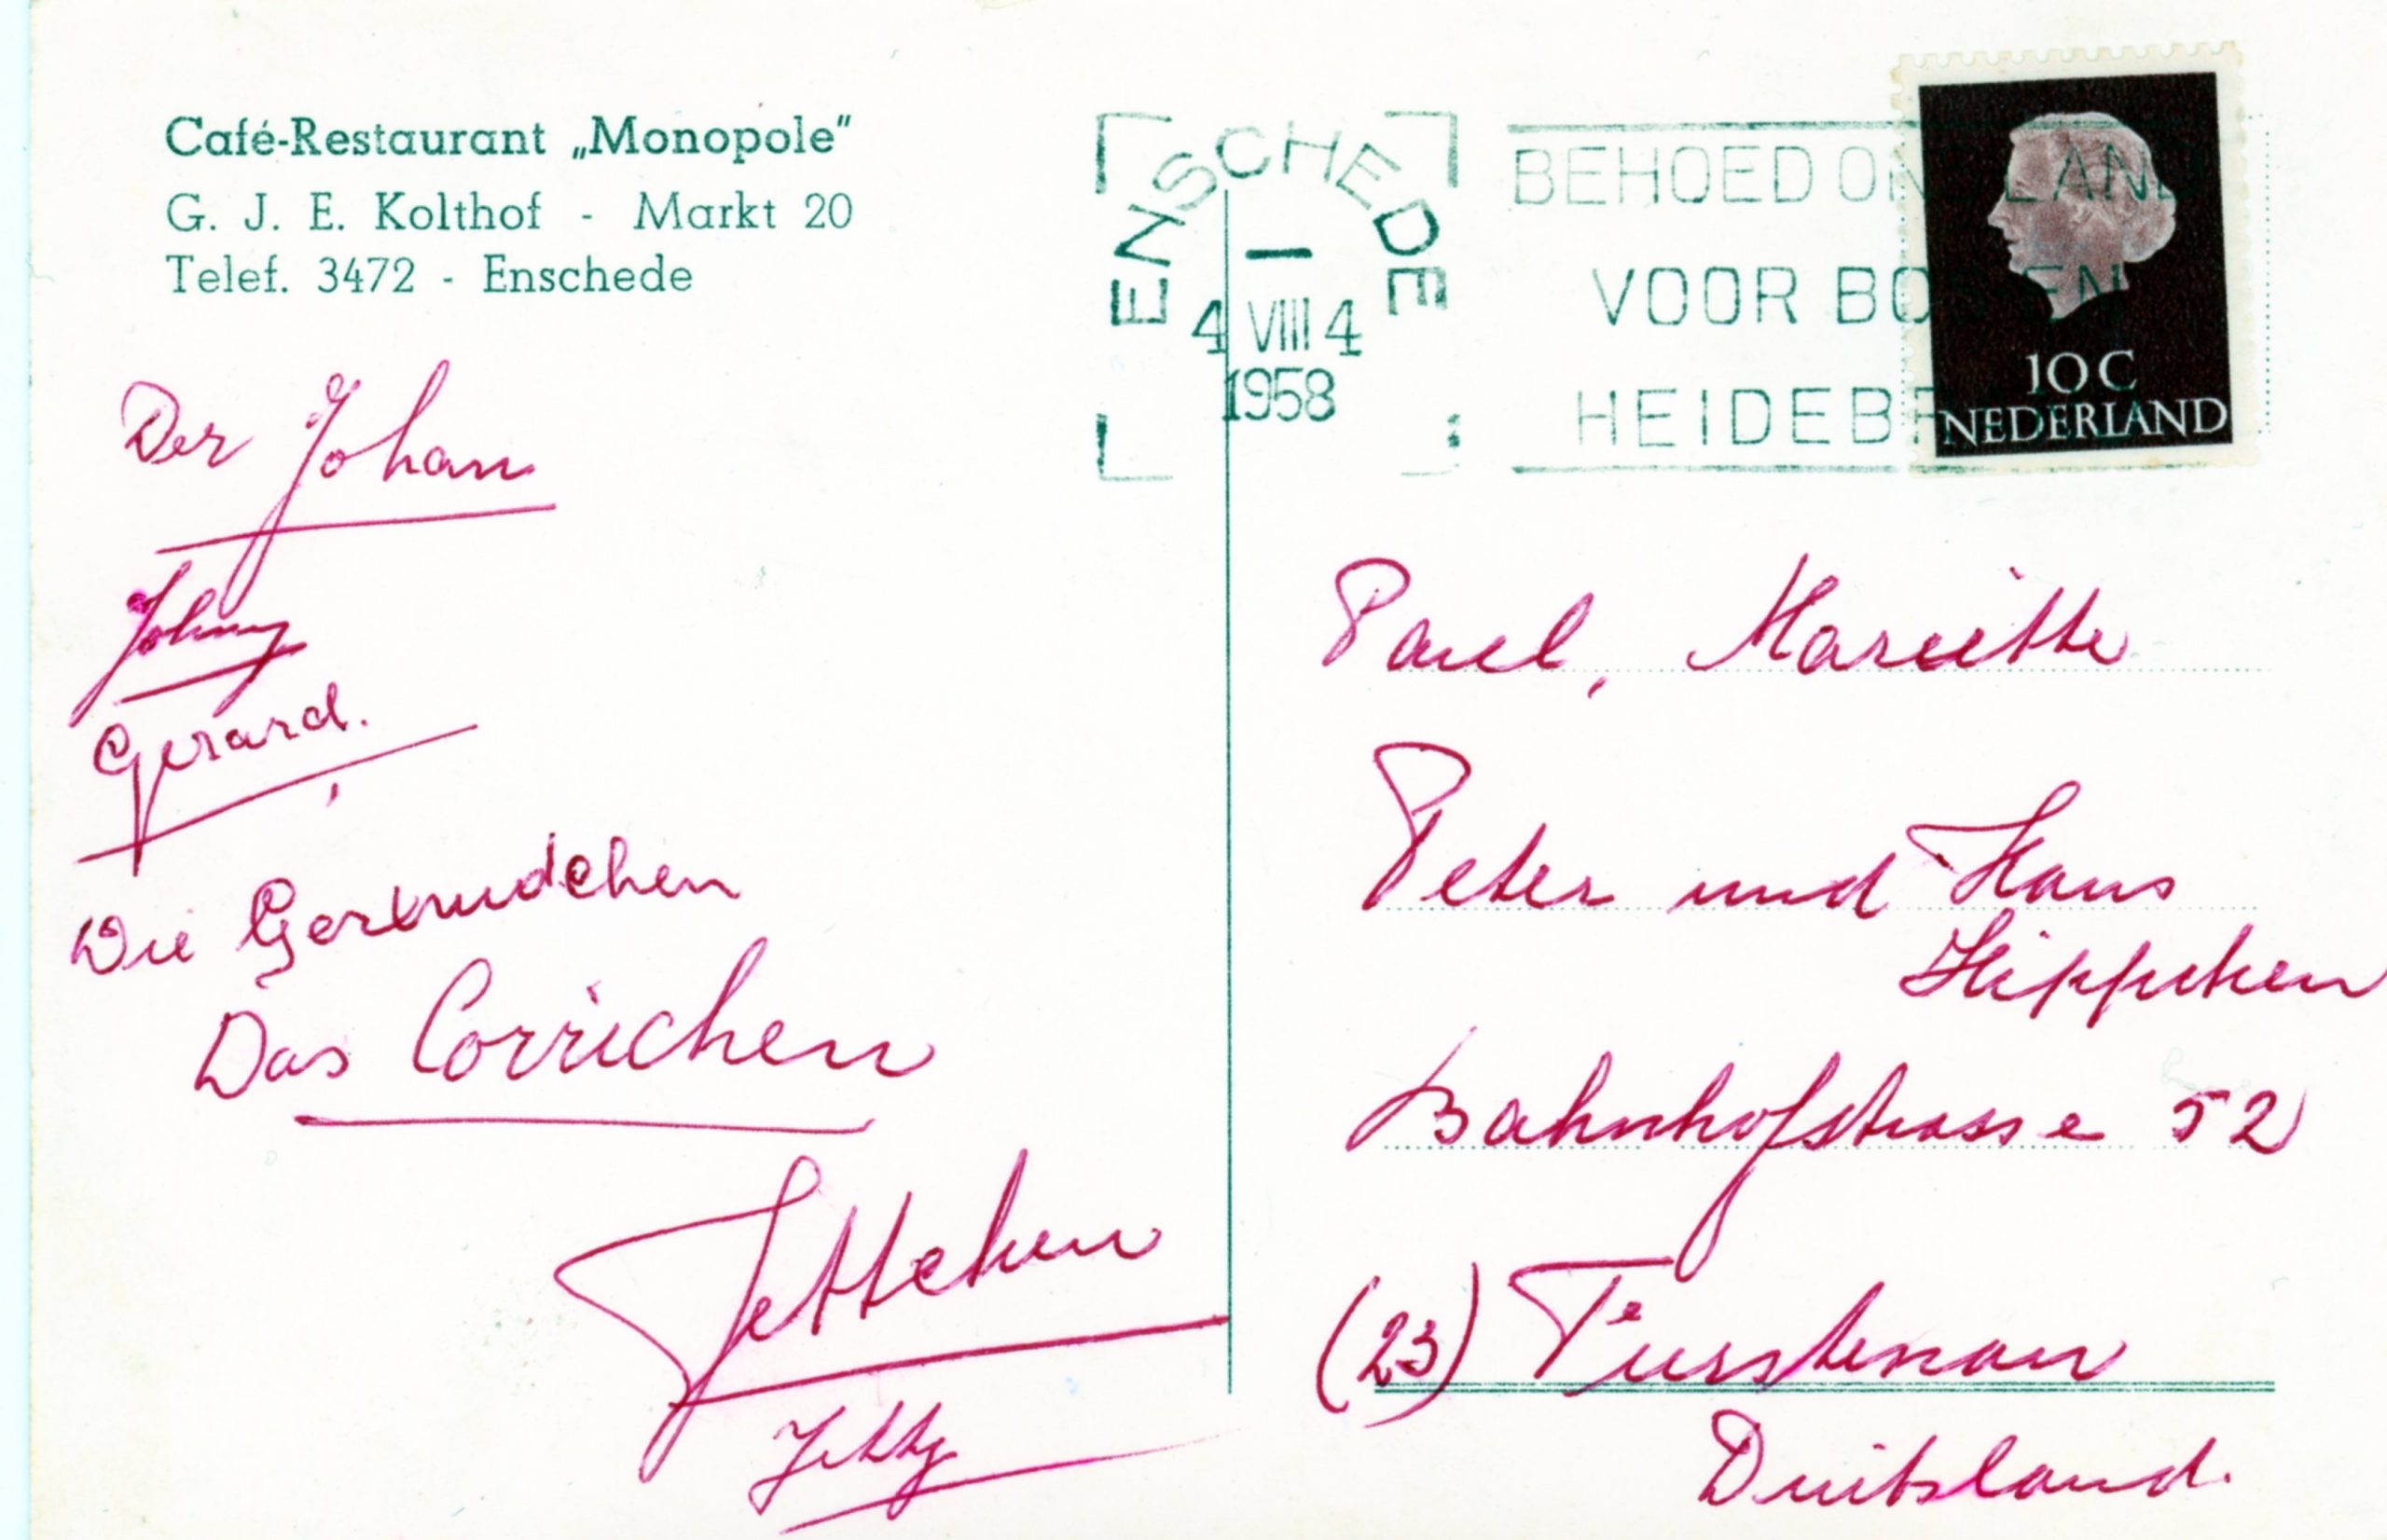 Café-Restaurant „Monopole"
G. J. E. Kolthof - Markt 20
Telef. 3472 - Enschede
ENSCHEDE
4 VIII 4
1958
BEHOED ON LAND
VOOR BOS EN
HEIDEBR
10 C
NEDERLAND
Der Johan
Johny
Gerard.
Die Gertrudchen
Das Corrichen
Jettchen
Jetty
Paul, Mariette
Peter und Hans
Bahnhofstrasse 52
(23) Fürstenau
Duitsland.